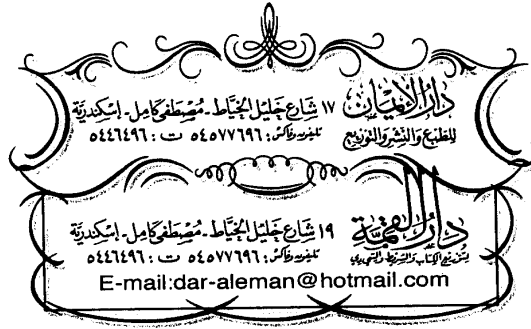 دار الإيمان
للطبع والنشر والتوزيع
١٧ شارع خليل الخياط - مصطفى كامل - إسكندرية
تليفون وفاكس: ٥٤٥٧٧٦٩٦ ت: ٥٤٤٦٤٩٦
دار القمة
لتوزيع الكتاب والشريط الخيري
١٩ شارع خليل الخياط - مصطفى كامل - إسكندرية
تليفون وفاكس: ٥٤٥٧٧٦٩٦ ت: ٥٤٤٦٤٩٦
E-mail:dar-aleman@hotmail.com